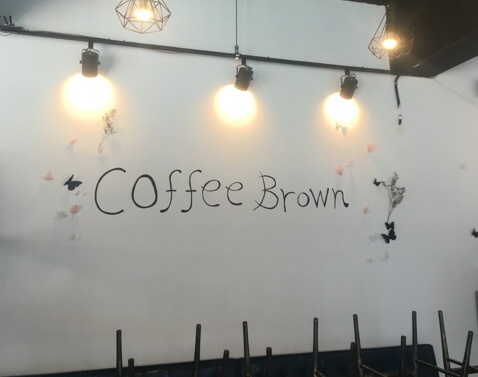 Coffee Brown